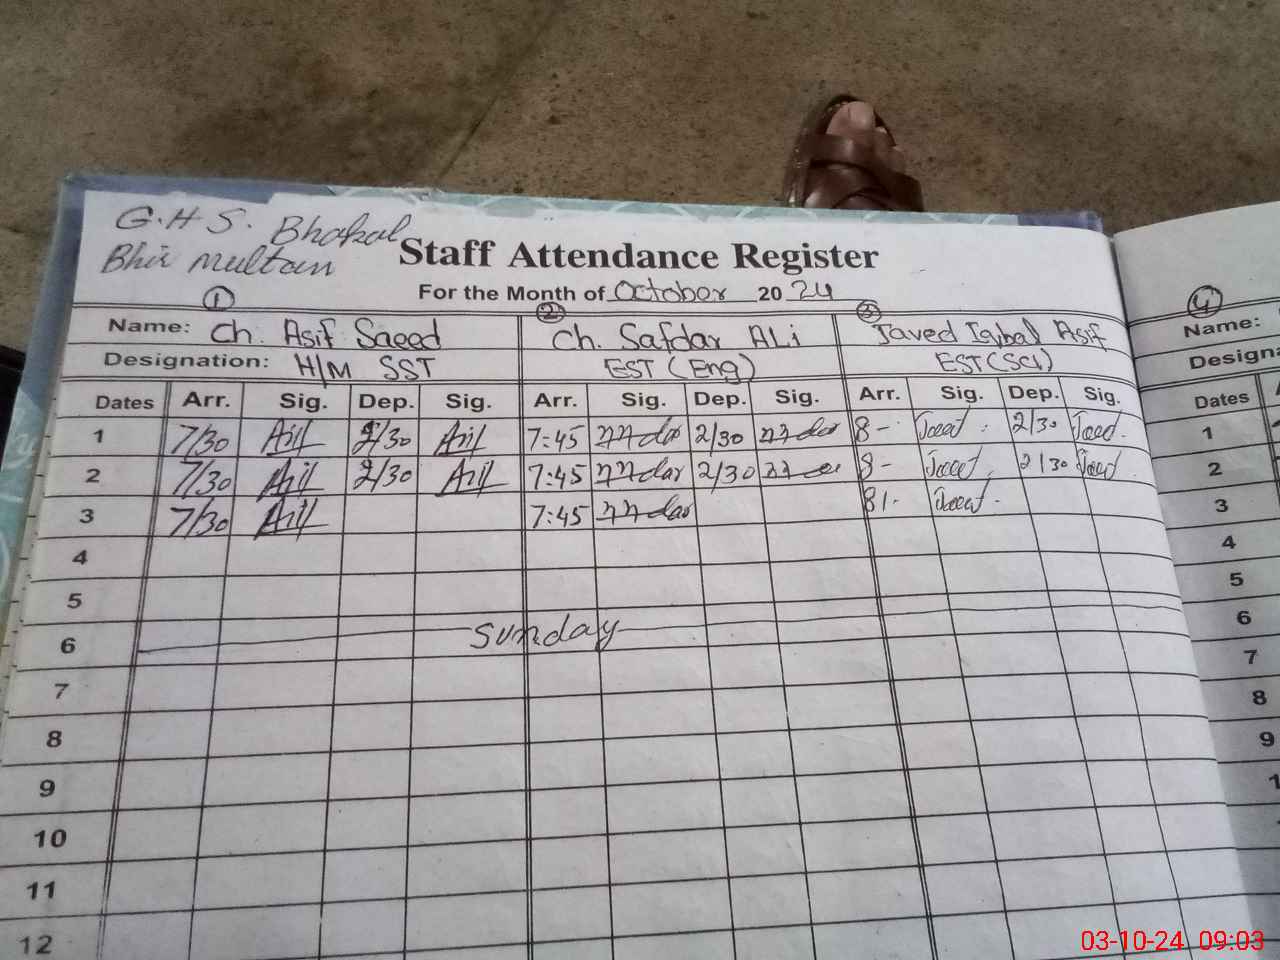 G.H.S. Bhakal
Bhir Multan
Staff Attendance Register
For the Month of October 2024
① ② ③ ④
Name: Ch. Asif Saeed Ch. Safdar ALi Javed Iqbal Asif Name:
Designation: H/M SST EST (Eng) EST (Sci)
Dates Arr. Sig. Dep. Sig. Arr. Sig. Dep. Sig. Arr. Sig. Dep. Sig. Dates
1 7/30 Asif 2/30 Asif 7:45 2/30 8- 2/30 1
2 7/30 Asif 2/30 Asif 7:45 2/30 8- 2/30 2
3 7/30 Asif 7:45 8/- 3
4 4
5 5
6 Sunday 6
7 7
8 8
9 9
10
11
12
03-10-24 09:03